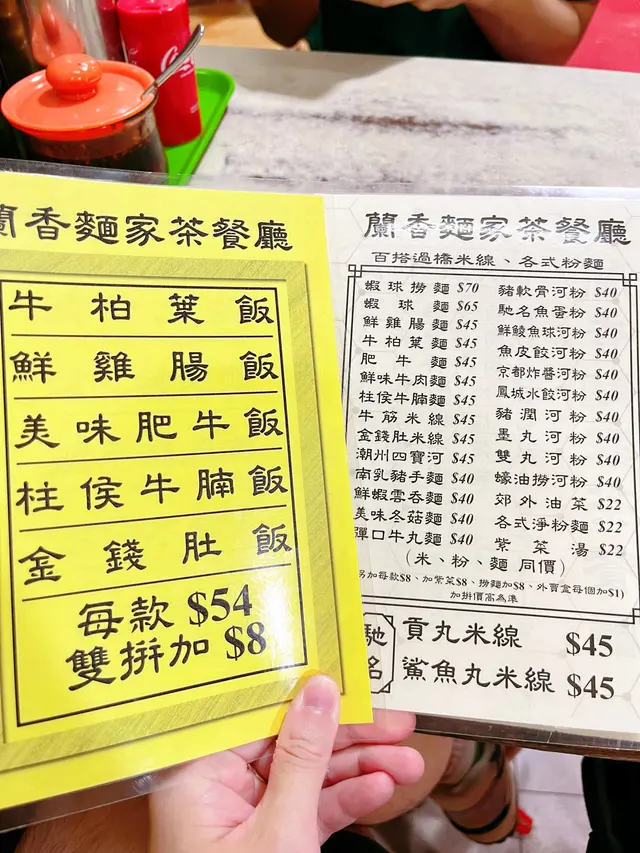 蘭香麵家茶餐廳
牛柏葉飯
鮮雞腸飯
美味肥牛飯
柱侯牛腩飯
金錢肚飯
每款 $54
雙拼加 $8
蘭香麵家茶餐廳
百搭過橋米線、各式粉麵
蝦球撈麵 $70
蝦球麵 $65
鮮雞腸麵 $45
牛柏葉麵 $45
肥牛麵 $45
鮮味牛肉麵 $45
柱侯牛腩麵 $45
牛筋米線 $45
金錢肚米線 $45
潮州四寶河 $45
南乳豬手麵 $40
鮮蝦雲吞麵 $40
美味冬菇麵 $40
彈口牛丸麵 $40
豬軟骨河粉 $40
馳名魚蛋粉 $40
鮮鯪魚球河粉 $40
魚皮餃河粉 $40
京都炸醬河粉 $40
鳳城水餃河粉 $40
豬潤河粉 $40
墨丸河粉 $40
雙丸河粉 $40
蠔油撈河粉 $40
郊外油菜 $22
各式淨粉麵 $22
紫菜湯 $22
(米、粉、麵 同價)
另加每款$8、加紫菜$8、撈麵加$8、外賣盒每個加$1)
加拼價高為準
馳名
貢丸米線 $45
鯊魚丸米線 $45